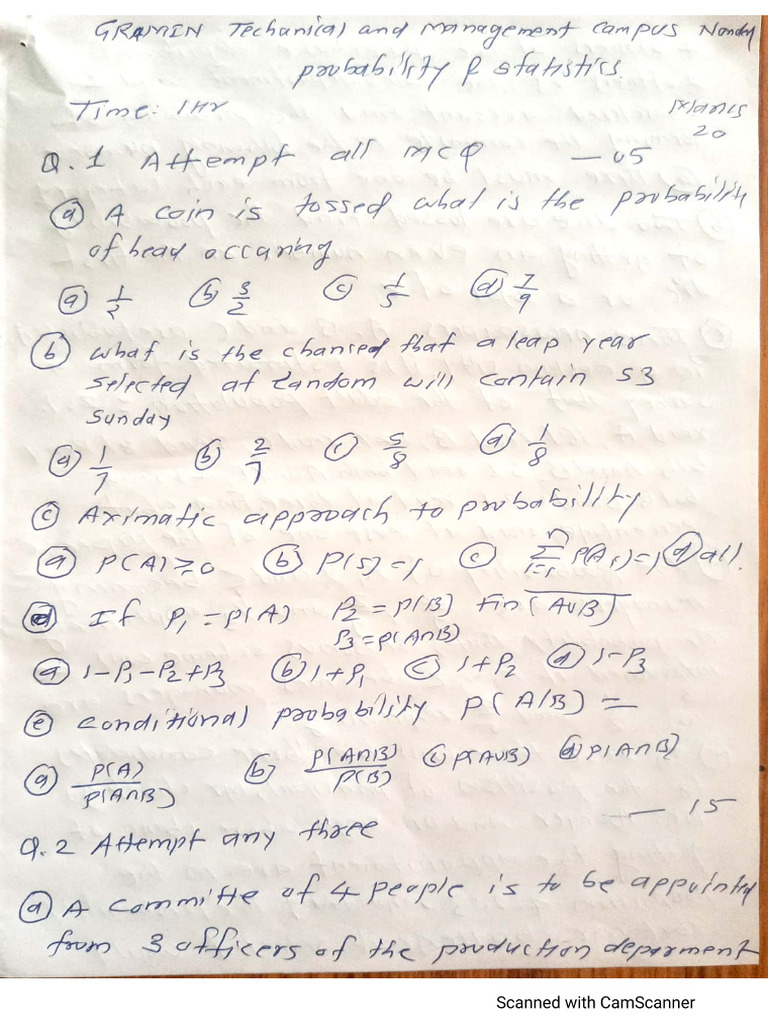 GRAMIN Techanical and management campus Nanded
probability & statistics.
Time: 1Hr
Marks
20
Q.1 Attempt all MCQ — 05
(a) A coin is tossed what is the probability
of head occaring
(a) 1/2 (b) 3/2 (c) 1/5 (d) 7/9
(b) what is the chansed that a leap year
selected at random will contain 53
Sunday
(a) 1/7 (b) 2/7 (c) 5/8 (d) 1/8
(c) Aximatic approach to probability
(a) P(A)≥0 (b) P(S)=1 (c) ∑ⁿᵢ₌₁ P(Aᵢ)=1 (d) all.
(d) If P₁ = P(A) P₂ = P(B) Fin (A̅U̅B̅)
P₃ = P(A∩B)
(a) 1-P₁-P₂+P₃ (b) 1+P₁ (c) 1+P₂ (d) 1-P₃
(e) conditional probability P(A/B) =
(a) P(A)/P(A∩B) (b) P(A∩B)/P(B) (c) P(AUB) (d) P(A∩B)
— 15
Q.2 Attempt any three
(a) A committe of 4 people is to be appointed
from 3 officers of the production deparment
Scanned with CamScanner